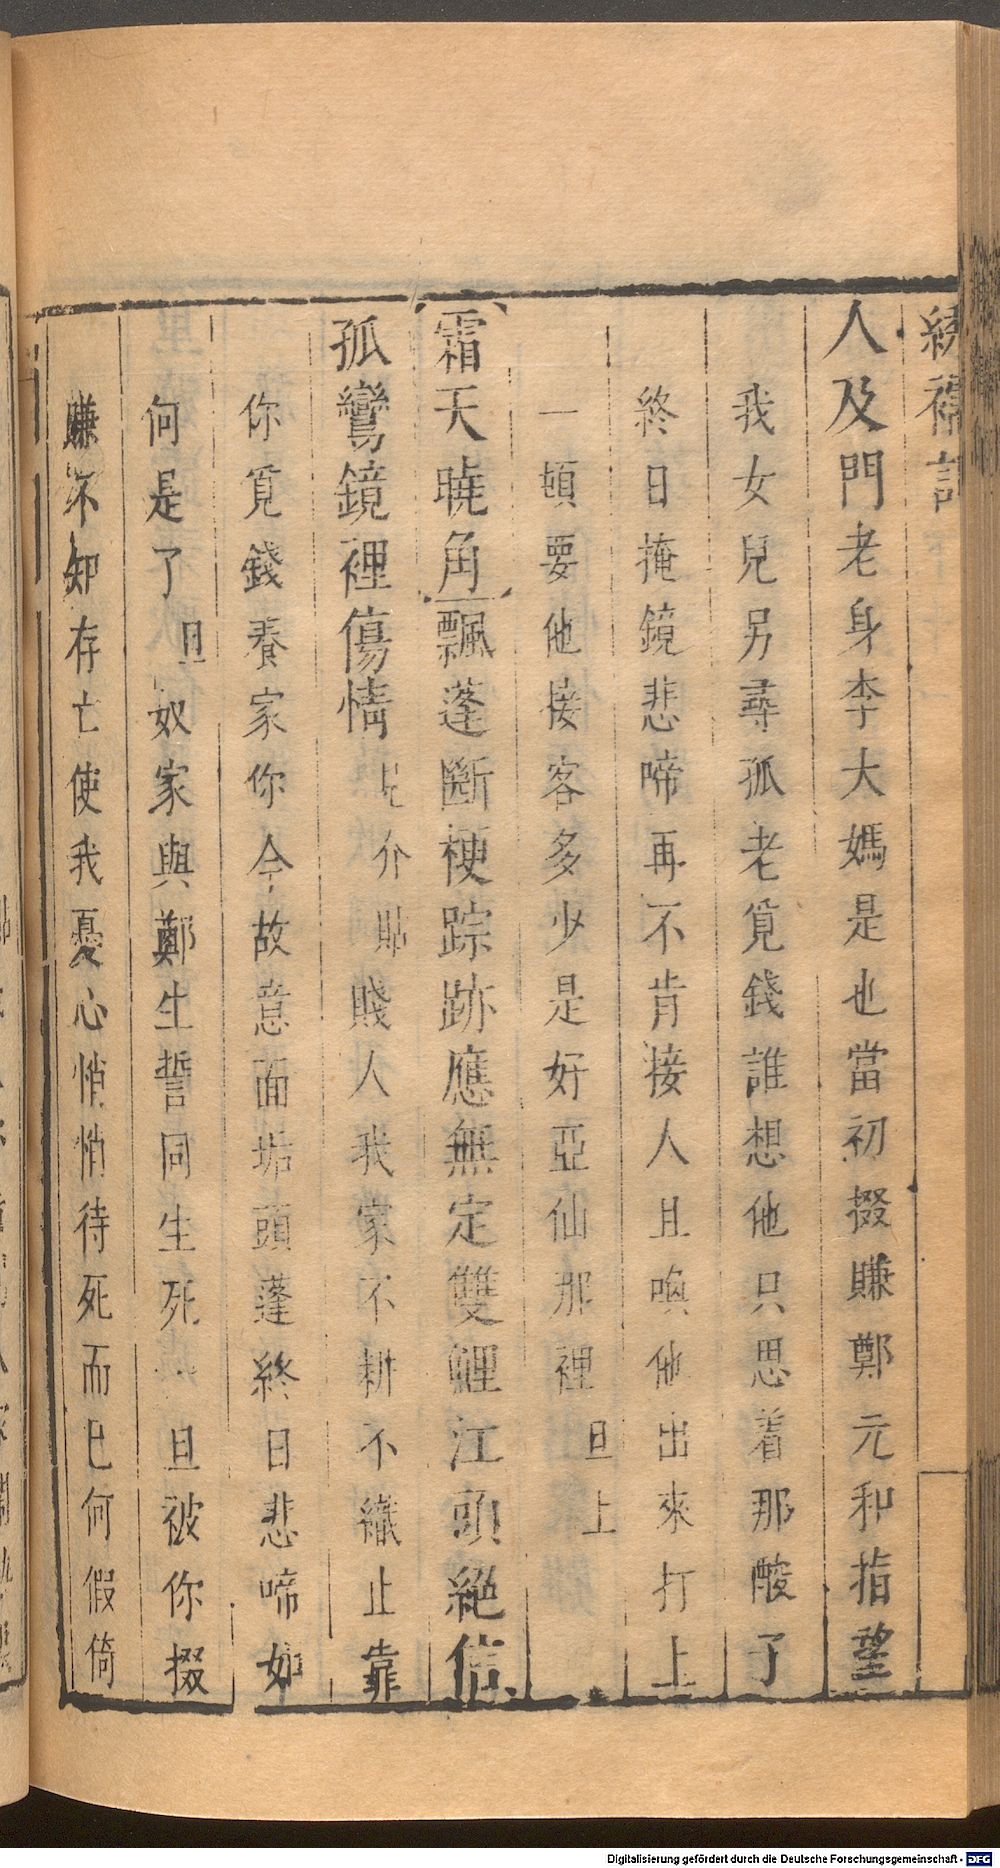 繡襦記
人及門老身李大媽是也當初掇賺鄭元和指望
我女兒另尋孤老覓錢誰想他只思着那酸了
終日掩鏡悲啼再不肯接人且喚他出來打上
一頓要他接客多少是好亞仙那裡旦上
霜天曉角飄蓬斷梗踪跡應無定雙鯉江頭絕信
孤鸞鏡裡傷情見介貼賤人我家不耕不織止靠
你覓錢養家你今故意面垢頭蓬終日悲啼如
何是了旦奴家與鄭生誓同生死旦被你掇
賺不知存亡使我憂心悄悄待死而已何假倚
Digitalisierung gefördert durch die Deutsche Forschungsgemeinschaft - DFG